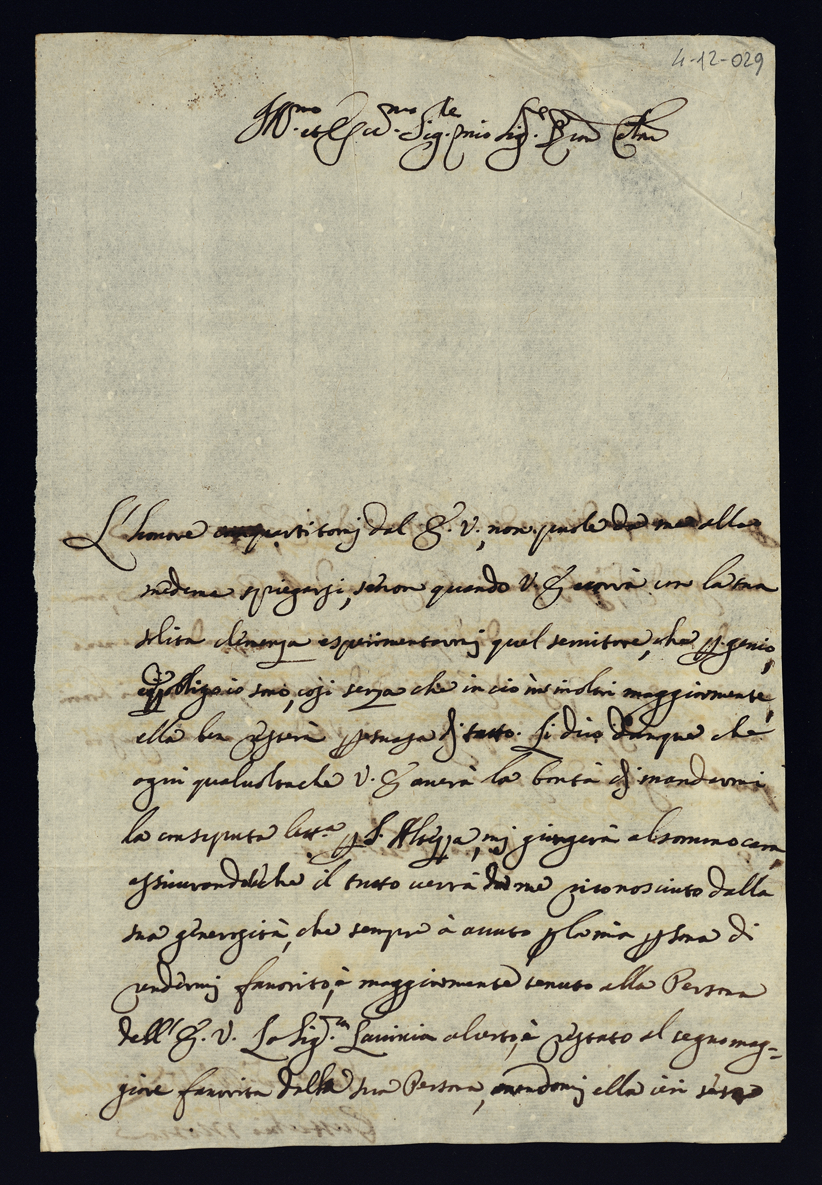 4-12-029
Ill.mo et Ecc.mo Sig.re mio Sig.re P.ron Col.mo
L'honore compartitomj dal E. V., non puole da me alla
medema spiegarsi, senon quando V. E. vorrà con la sua
solita clemenza esperimentarmj quel seruitore, che p. genio,
e p obligo io sono, cosi senza che in cio m'inoltri maggiormente,
ella ben resterà psuasa dj tutto. Li dico dunque che
ogni qualuoltache V. E. auerà la bontà dj mandarmi
la consaputa lett.a p S. Altezza, mj giungerà al sommo cara,
assicurandola che il tutto uerrà da me riconosciuto dalla
sua generosità, che sempre à auuto p la mia psona di
rendermj fauorito, è maggiormente tenuto alla Persona
dell' E. V. La Sig.ra Lauinia al certo, è restata al segno mag=
giore fauorita dalla sua Persona, ella ieri sera